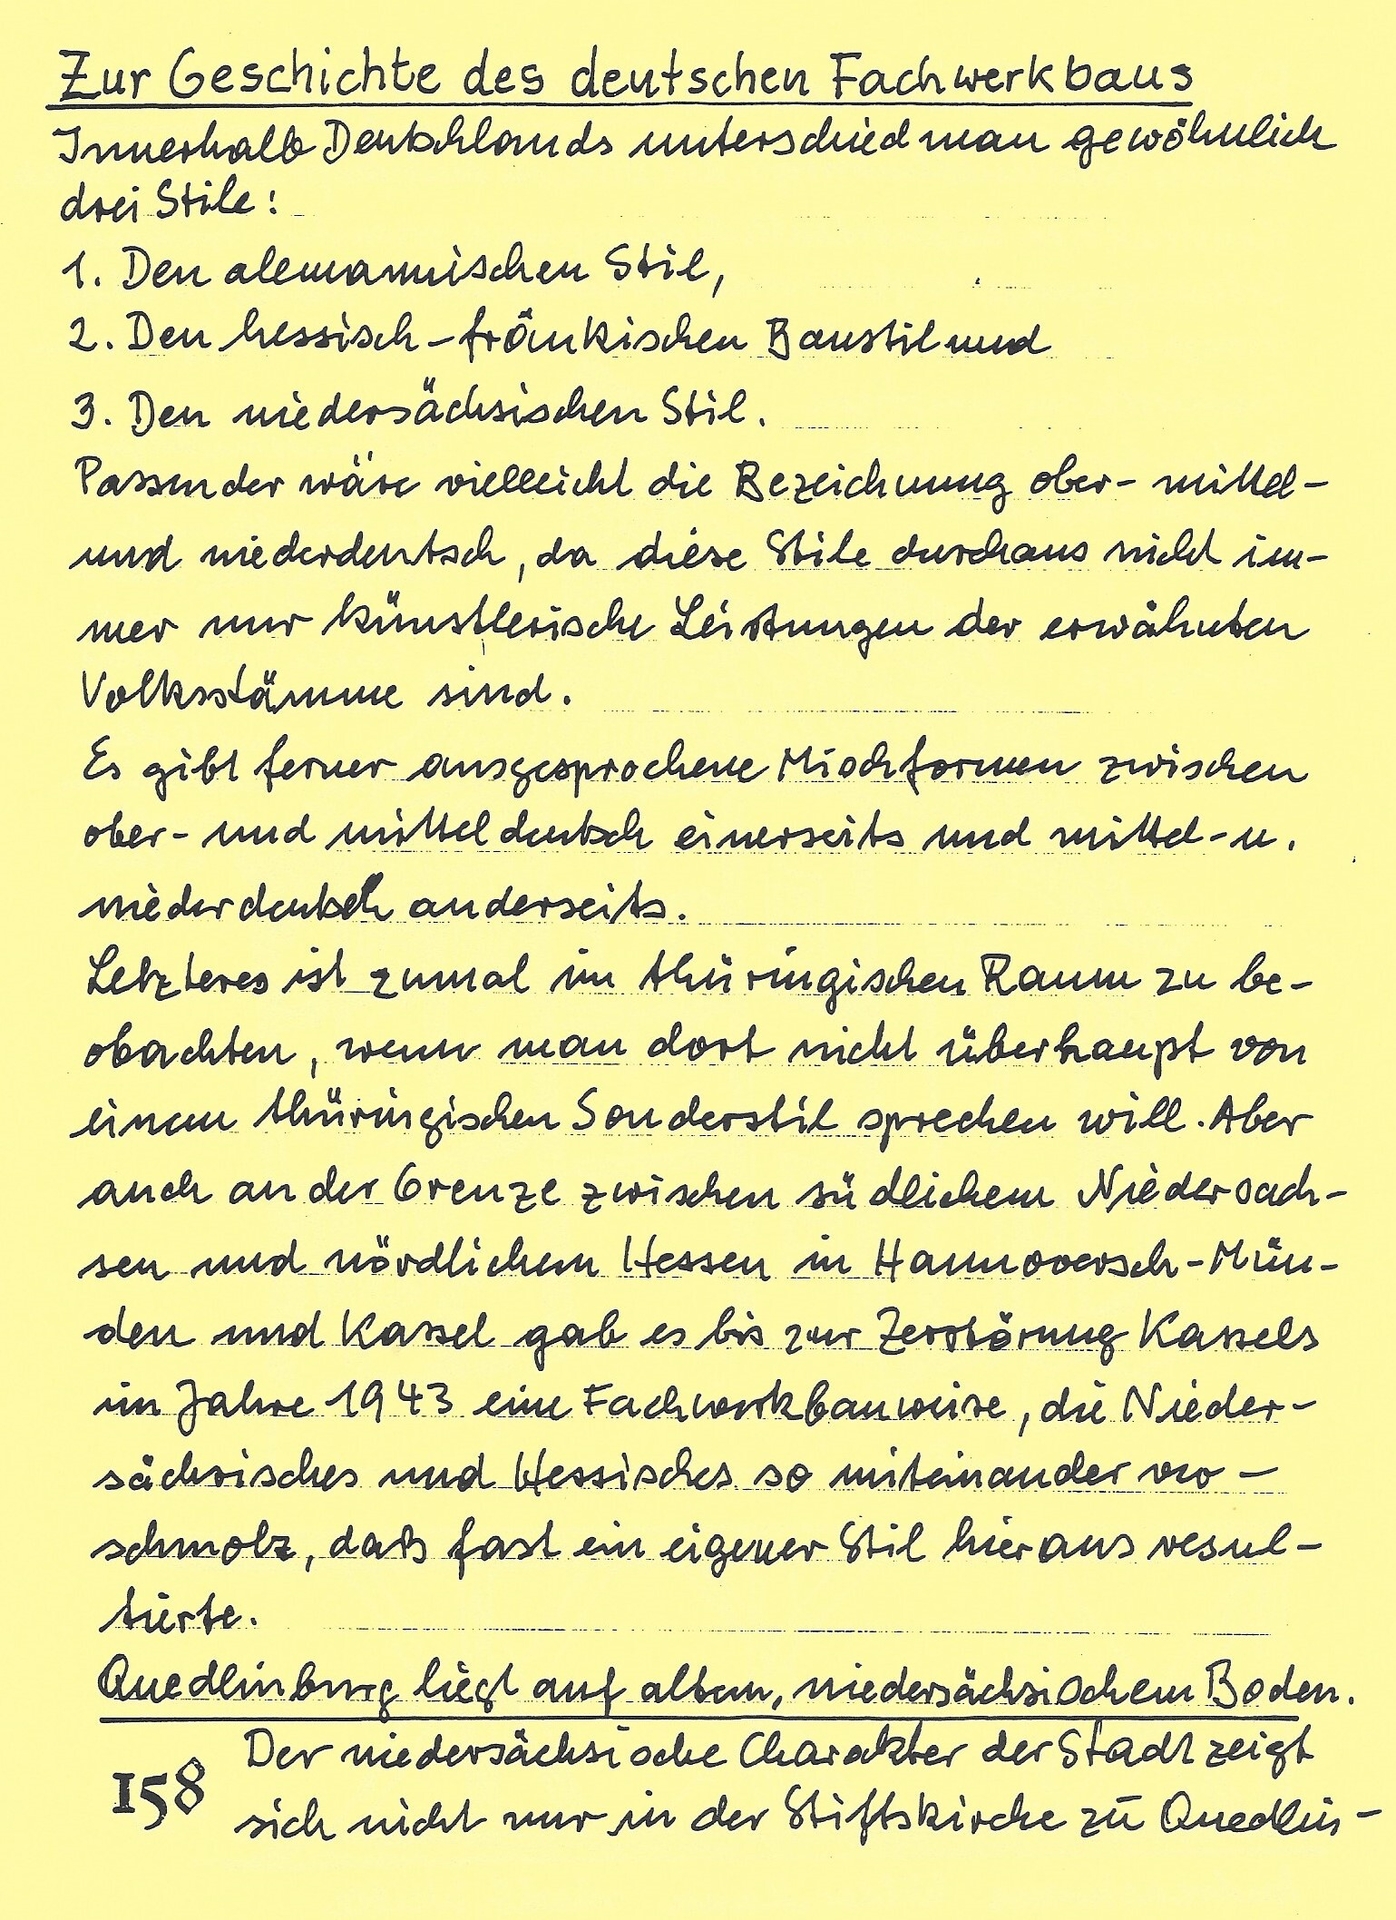 Zur Geschichte des deutschen Fachwerkbaus
Innerhalb Deutschlands unterschied man gewöhnlich
drei Stile:
1. Den alemannischen Stil,
2. Den hessisch-fränkischen Baustil und
3. Den niedersächsischen Stil.
Passender wäre vielleicht die Bezeichnung ober- mittel-
und niederdeutsch, da diese Stile durchaus nicht im-
mer nur künstlerische Leistungen der erwähnten
Volksstämme sind.
Es gibt ferner ausgesprochene Mischformen zwischen
ober- und mitteldeutsch einerseits und mittel- u.
niederdeutsch anderseits.
Letzteres ist zumal im thüringischen Raum zu be-
obachten, wenn man dort nicht überhaupt von
einem thüringischen Sonderstil sprechen will. Aber
auch an der Grenze zwischen südlichem Niedersach-
sen und nördlichem Hessen in Hannoversch-Mün-
den und Kassel gab es bis zur Zerstörung Kassels
im Jahre 1943 eine Fachwerkbauweise, die Nieder-
sächsisches und Hessisches so miteinander ver-
schmolz, daß fast ein eigener Stil hieraus resul-
tierte.
Quedlinburg liegt auf altem, niedersächsischem Boden.
Der niedersächsische Charakter der Stadt zeigt
158 sich nicht nur in der Stiftskirche zu Quedlin-